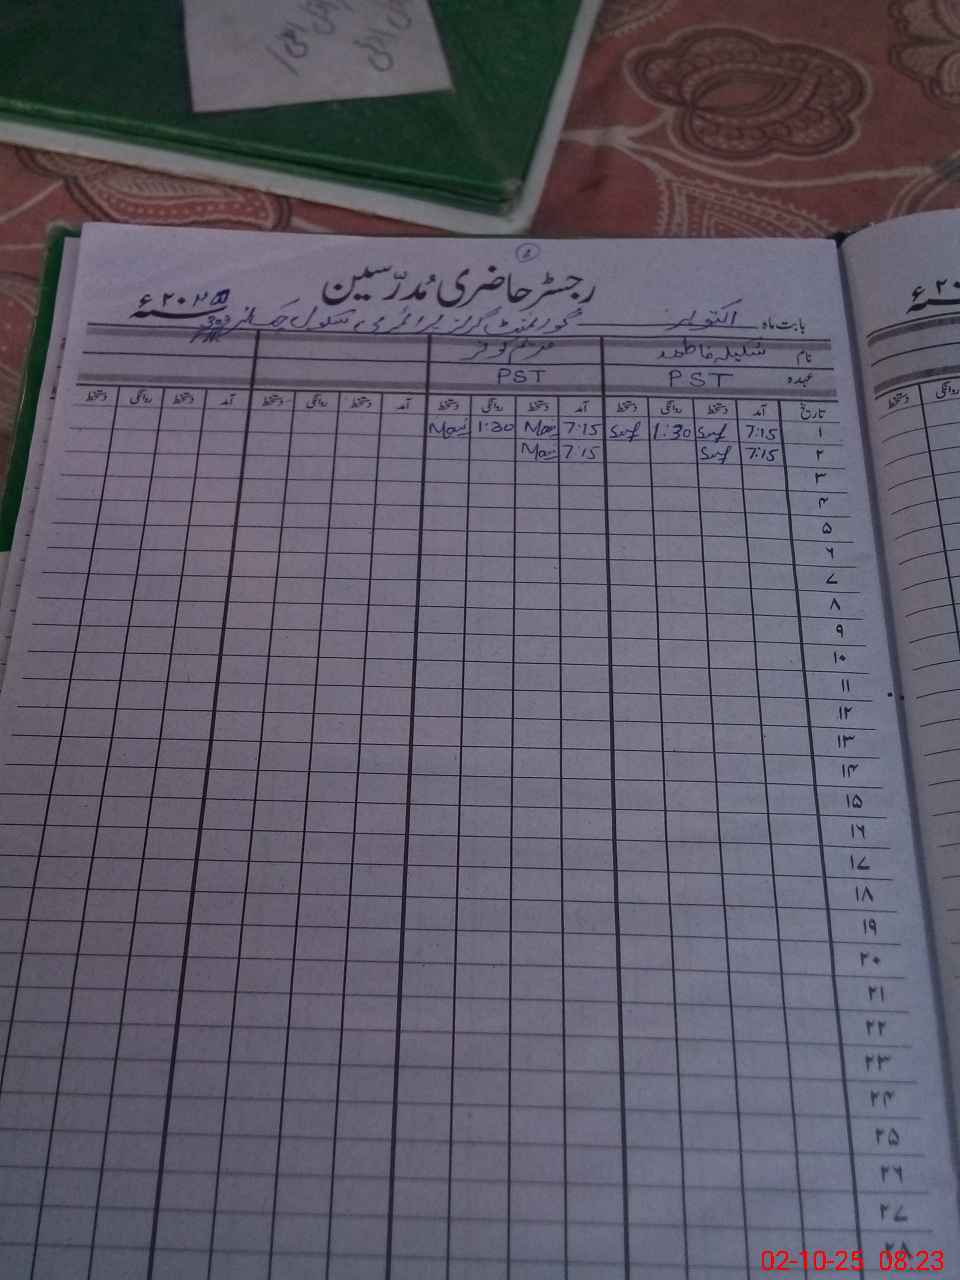 رجسٹر حاضری مُدرّسین
بابت ماہ اکتوبر گورنمنٹ گرلز پرائمری سکول ۲۰۲۵ء
نام شکیلہ فاطمہ مریم کوثر
عہدہ PST PST
تاریخ آمد دستخط روانگی دستخط آمد دستخط روانگی دستخط آمد دستخط روانگی دستخط آمد دستخط روانگی دستخط
۱ 7:15 1:30 7:15 1:30
۲ 7:15 7:15
۳
۴
۵
۶
۷
۸
۹
۱۰
۱۱
۱۲
۱۳
۱۴
۱۵
۱۶
۱۷
۱۸
۱۹
۲۰
۲۱
۲۲
۲۳
۲۴
۲۵
۲۶
۲۷
۲۸
02-10-25 08:23